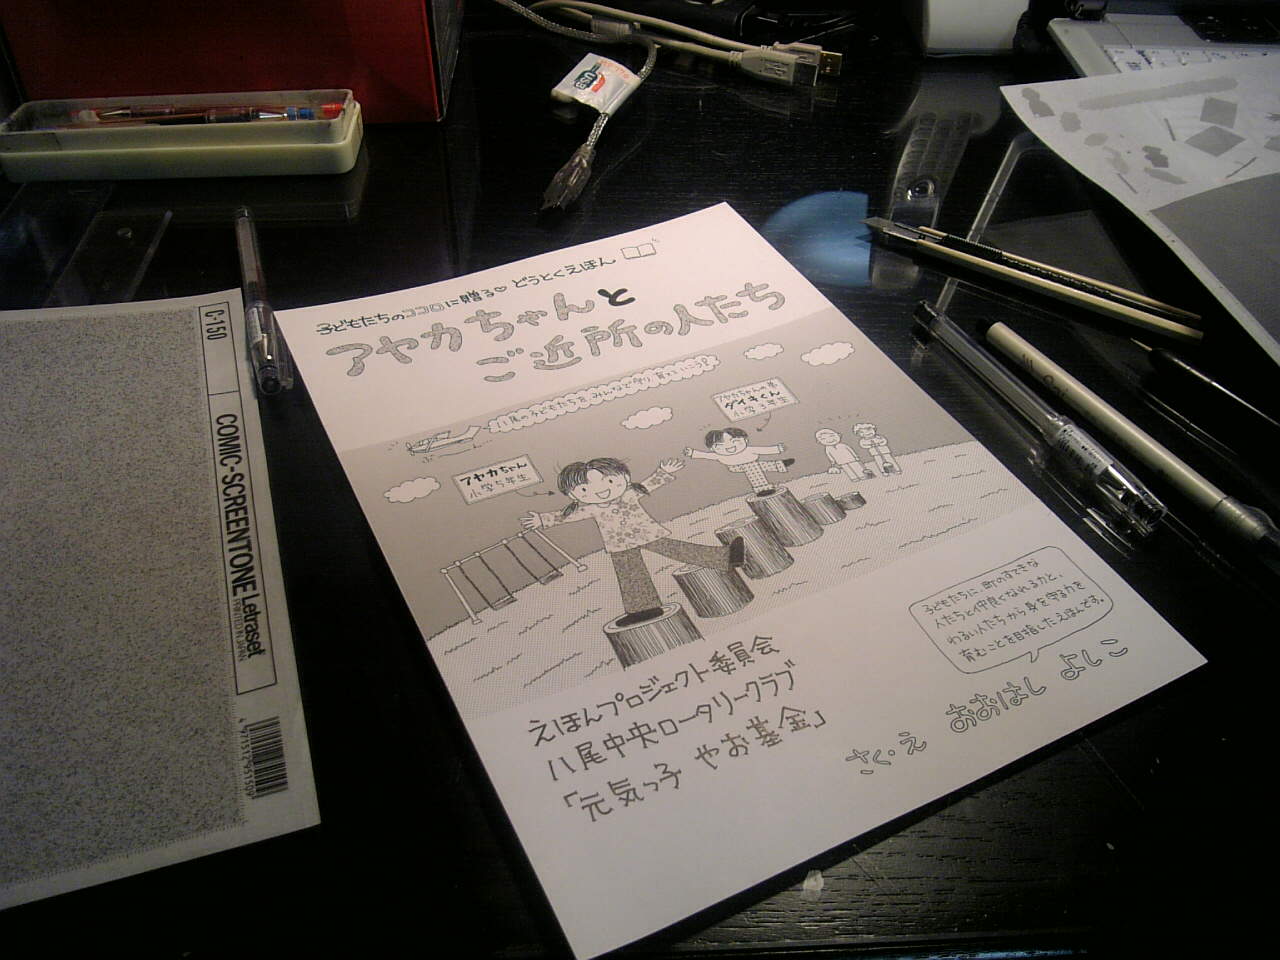 子どもたちのココロに贈る♡どうとくえほん
アヤカちゃんと
ご近所の人たち
八尾の子どもたちをみんなで守り育てていこう!
アヤカちゃんの弟
ダイキくん
小学3年生
アヤカちゃん
小学5年生
子どもたちに、町のすてきな
人たちと仲良くなれる力と、
わるい人たちから身を守る力を
育むことを目指したえほんです。
えほんプロジェクト委員会
八尾中央ロータリークラブ
「元気っ子 やお基金」
さく・え おおはし よしこ
C-150
COMIC-SCREENTONE Letraset
PRINTED IN JAPAN
USB